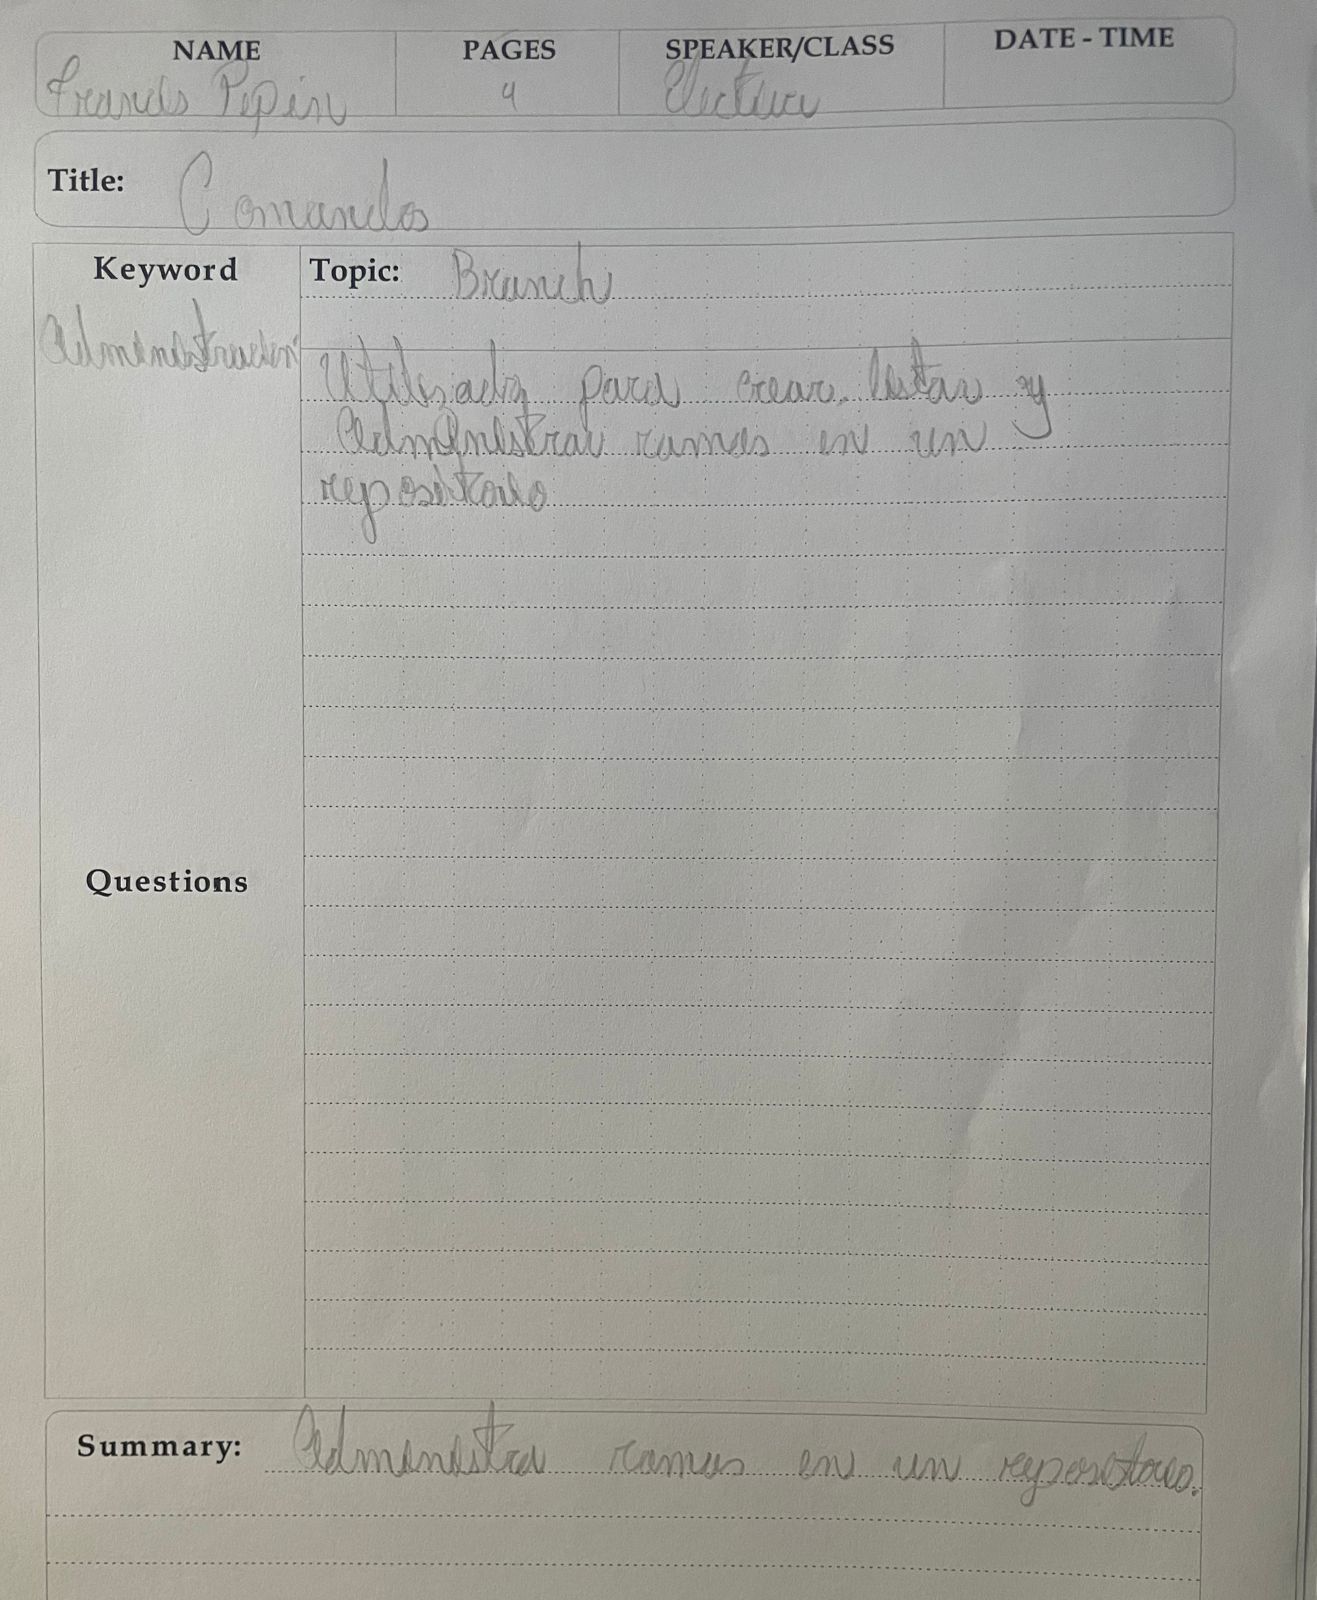 NAME PAGES SPEAKER/CLASS DATE - TIME
Francis Pepin 4 Electiva
Title: Comandos
Keyword Topic: Branch
Administración
Utilizado para crear, listar y
Administrar ramas en un
repositorio
Questions
Summary: Administra ramas en un repositorio.